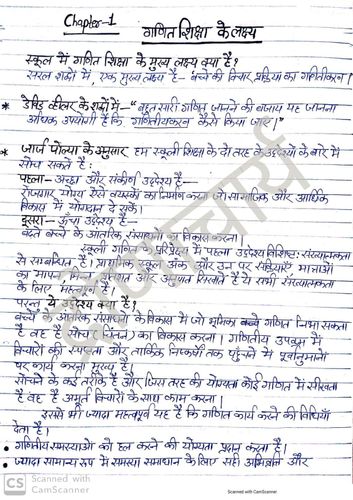 Chapter-1
गणित शिक्षा के लक्ष्य
स्कूल में गणित शिक्षा के मुख्य लक्ष्य क्या है?
सरल शब्दों में, एक मुख्य लक्ष्य है- बच्चे की विचार प्रक्रिया का गणितीकरण।
* डेविड व्हीलर के शब्दों में- "बहुत सारी गणित जानने की बजाय यह जानना
अधिक उपयोगी है कि गणितीयकरण कैसे किया जाए।"
* जार्ज पोल्या के अनुसार हम स्कूली शिक्षा के दो तरह के उद्देश्यों के बारे में
सोच सकते हैं:
पहला- अच्छा और संकीर्ण उद्देश्य है-
रोजगार योग्य ऐसे वयस्कों का निर्माण करना जो सामाजिक और आर्थिक
विकास में योगदान दे सकें।
दूसरा- ऊँचा उद्देश्य है-
बढ़ते बच्चे के आंतरिक संसाधनों का विकास करना।
स्कूली गणित के परिप्रेक्ष्य में पहला उद्देश्य विशिष्ट: संख्यात्मकता
से सम्बन्धित है। प्राथमिक स्कूल अंक और उन पर संक्रियाएँ मात्राओं
का मापन, भिन्न, प्रतिशत और अनुपात सिखाते हैं ये सभी संख्यात्मकता
के लिए महत्वपूर्ण है।
परन्तु ये उद्देश्य क्या है?
बच्चे के आंतरिक संसाधनों के विकास में जो भूमिका गणित निभा सकता
है वह है सोच (चिंतन) का विकास करना। गणितीय उपक्रम में
विचारों की स्पष्टता और तार्किक निष्कर्षों तक पहुँचने में पूर्वानुमानों
पर कार्य करना मुख्य है।
सोचने के कई तरीके हैं और जिस तरह की योग्यता कोई गणित में सीखता
है वह है अमूर्त विचारों के साथ काम करना।
इससे भी ज्यादा महत्वपूर्ण यह है कि गणित कार्य करने की विधियाँ
देता है।
• गणितीय समस्याओं को हल करने की योग्यता प्रदान करता है।
• ज्यादा सामान्य रूप में समस्या समाधान के लिए सही अभिवृत्ति और
देवाचार्य
CS Scanned with
CamScanner
Scanned with CamScanner